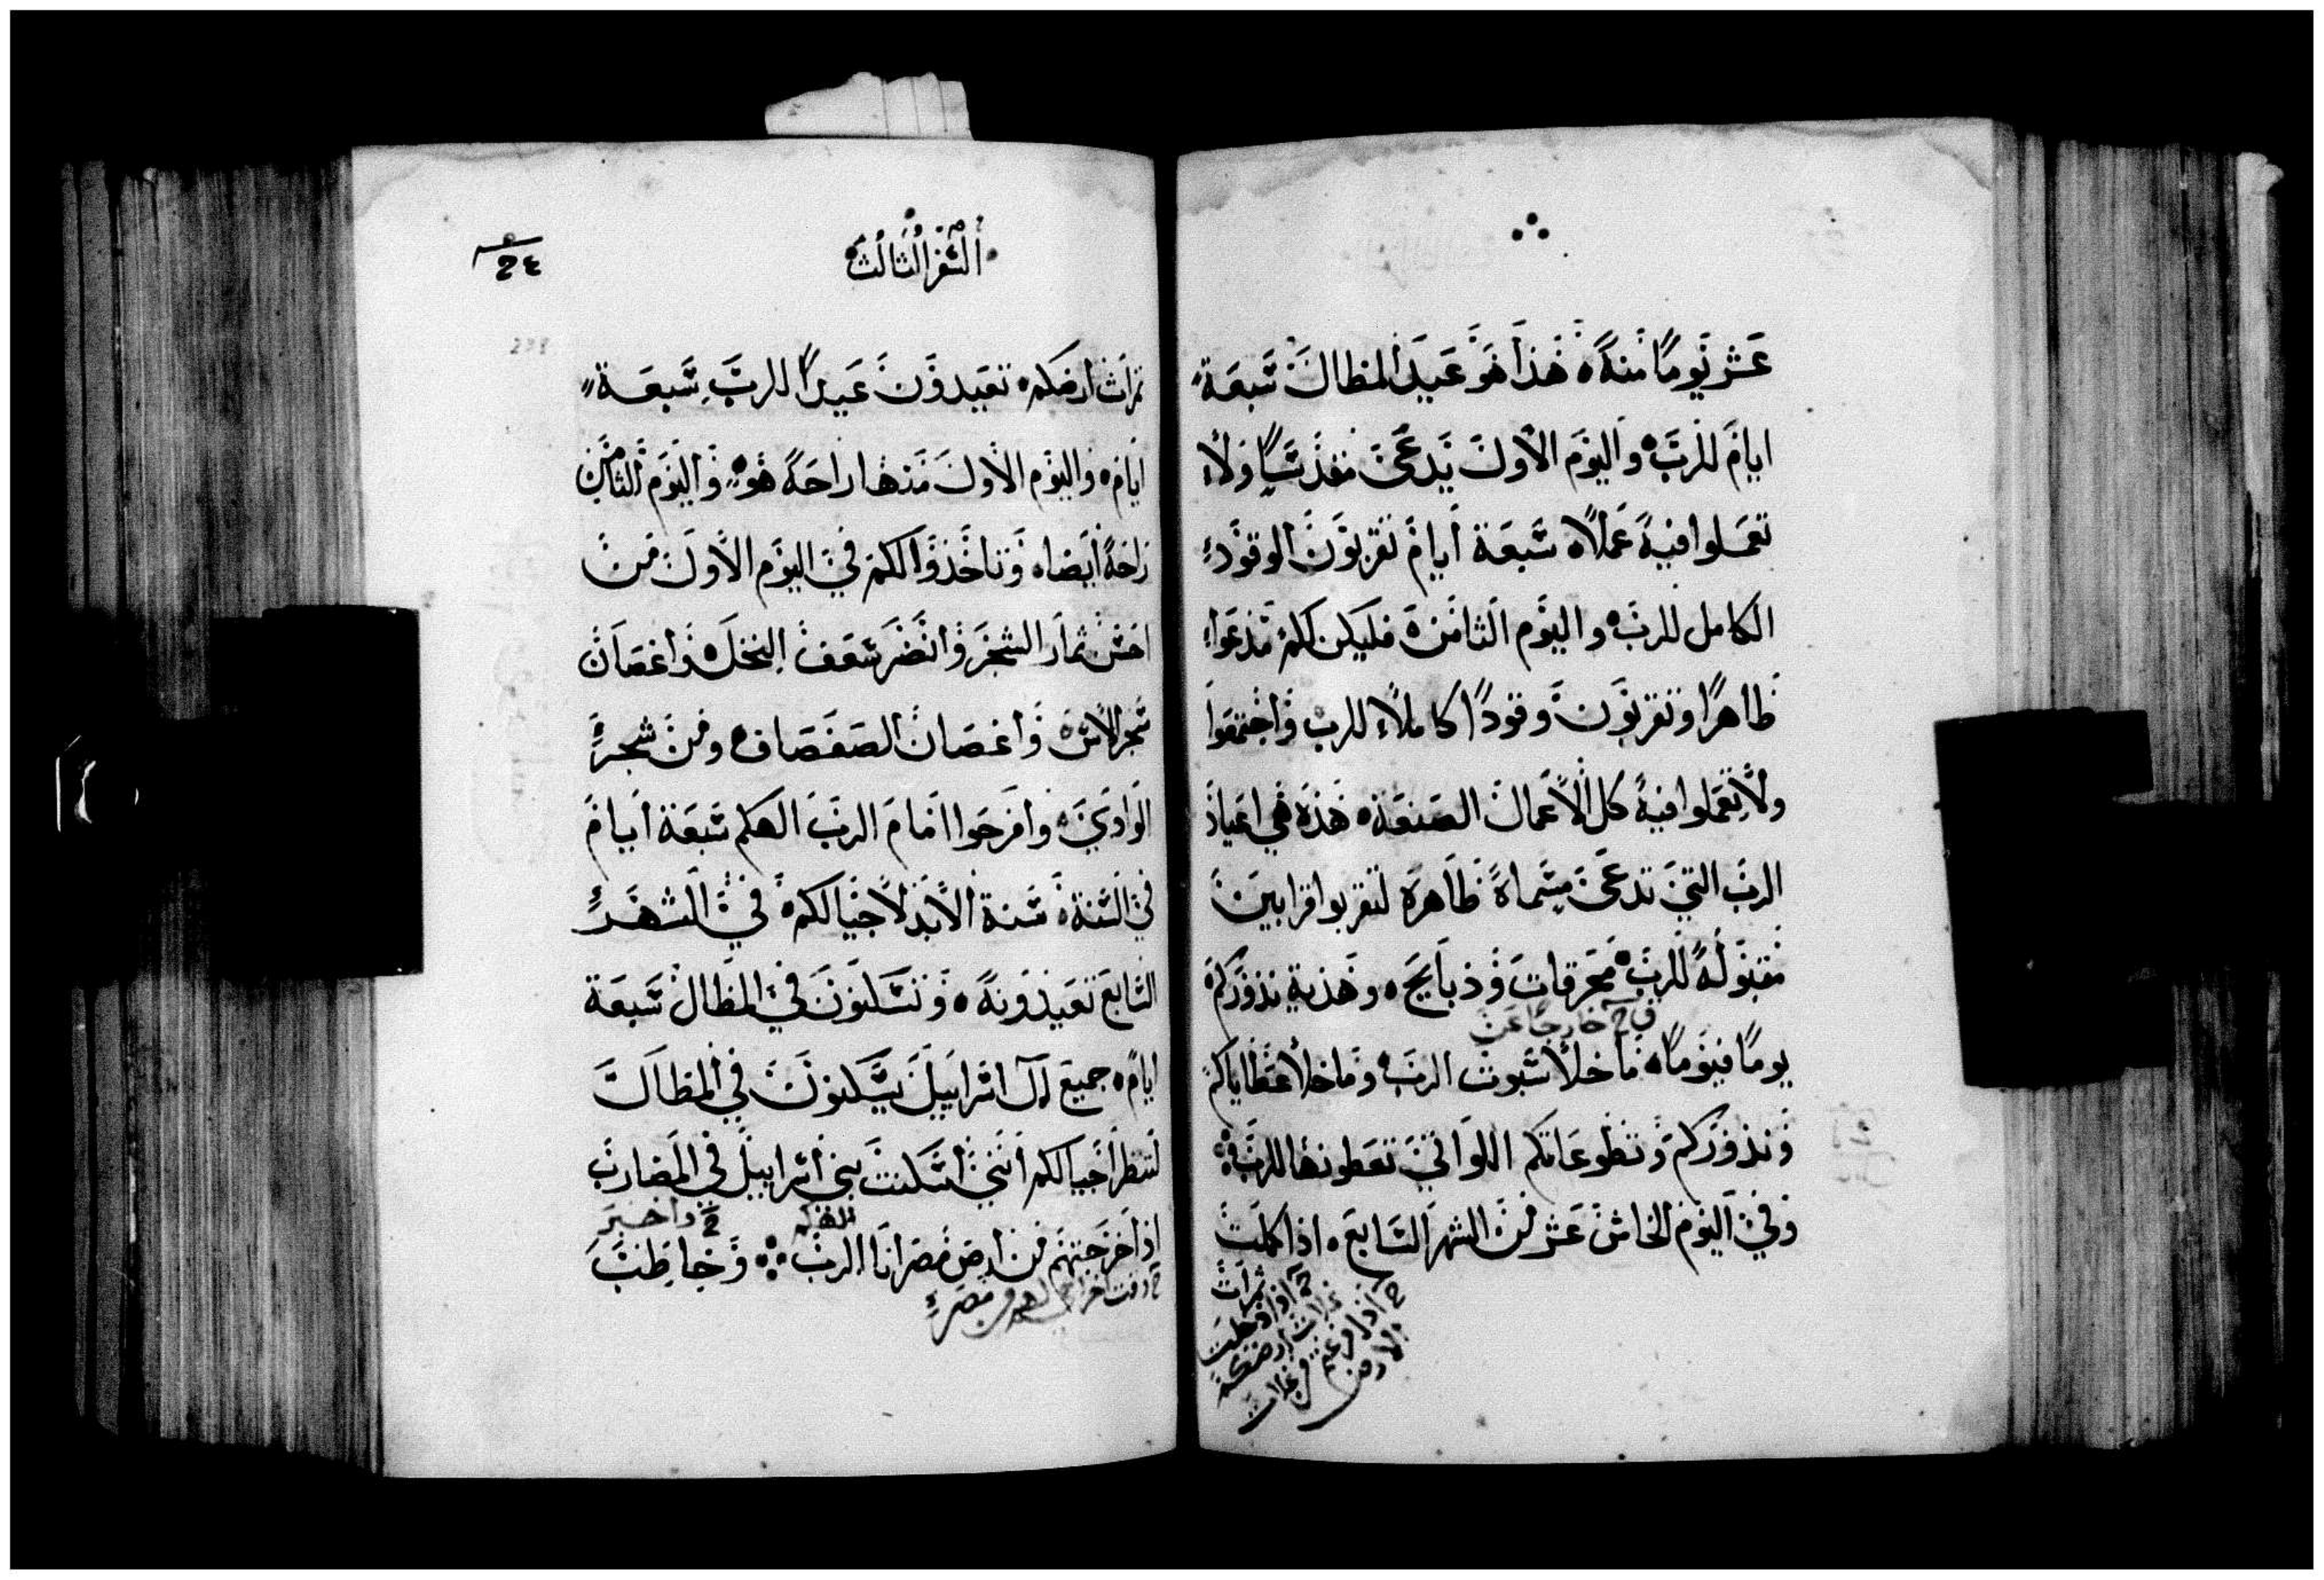 عشر يومًا منه هذا هو عيد المظال سبعة
ايام للرب واليوم الاول يدعى مقدسًا ولا
تعملوا فيه عملًا سبعة ايام تقربون الوقود
الكامل للرب واليوم الثامن فليكن لكم مدعوا
طاهرًا وتقربون وقودًا كاملًا للرب واجتمعوا
ولا تعملوا فيه كل الاعمال الصنعة هذه هي اعياد
الرب التي تدعى مسماة طاهرة لتقربوا قرابين
مقبولة للرب محرقات وذبايح وهدية نذوركم
خارجًا عن
يومًا فيومًا ما خلا سبوت الرب وما خلا عطاياكم
ونذوركم وتطوعاتكم اللواتي تعطونها للرب
وفي اليوم الخامس عشر من الشهر السابع اذا كملت
السفر الثالث
ثمرات ارضكم تعيدون عيدًا للرب سبعة
ايام واليوم الاول منها راحة هو واليوم الثامن
راحة ايضا وتاخذوا لكم في اليوم الاول من
احسن ثمار الشجر وانضر سعف النخل واغصان
شجر الاس واغصان الصفصاف ومن شجر
الوادي وافرحوا امام الرب الهكم سبعة ايام
في السنة سنة الابد لاجيالكم في الشهر
السابع تعيدونه وتسكنون في المظال سبعة
ايام جميع ال اسراييل يسكنون في المظال
لتنظر اجيالكم انني اسكنت بني اسراييل في المضارب
الهكم واخبر
اذ اخرجتهم من ارض مصر انا الرب وخاطب